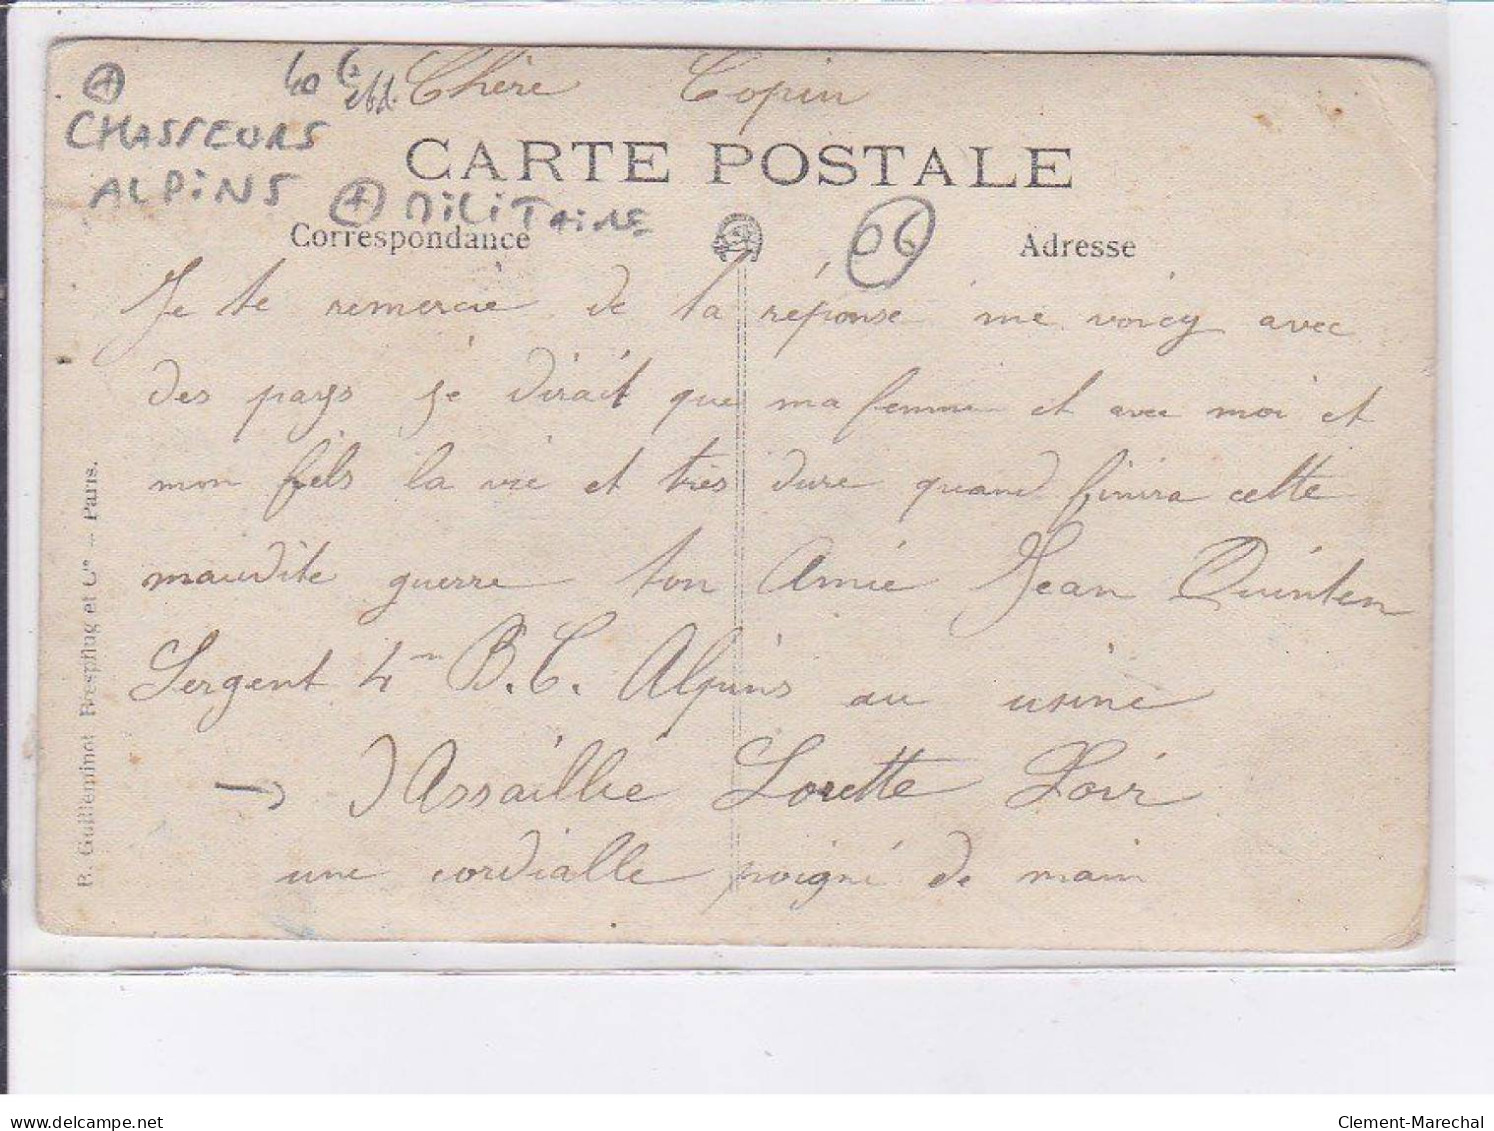 Chère Copin
CHASSEURS
ALPINS + MILITAIRE
CARTE POSTALE
Correspondance
06
Adresse
Je te remercie de ta réponse me voicy avec
des pays je dirait que ma femme et avec moi et
mon fiels la vie et très dure quand finira cette
maudite guerre ton Amie Jean Quinten
Sergent 4 B.C. Alpins au usine
→ d'Assaillie Lorette Loir
une cordialle poigné de main
R. Guilleminot Bœspflug et Cie – Paris.
delcampe.net
Clement-Marechal